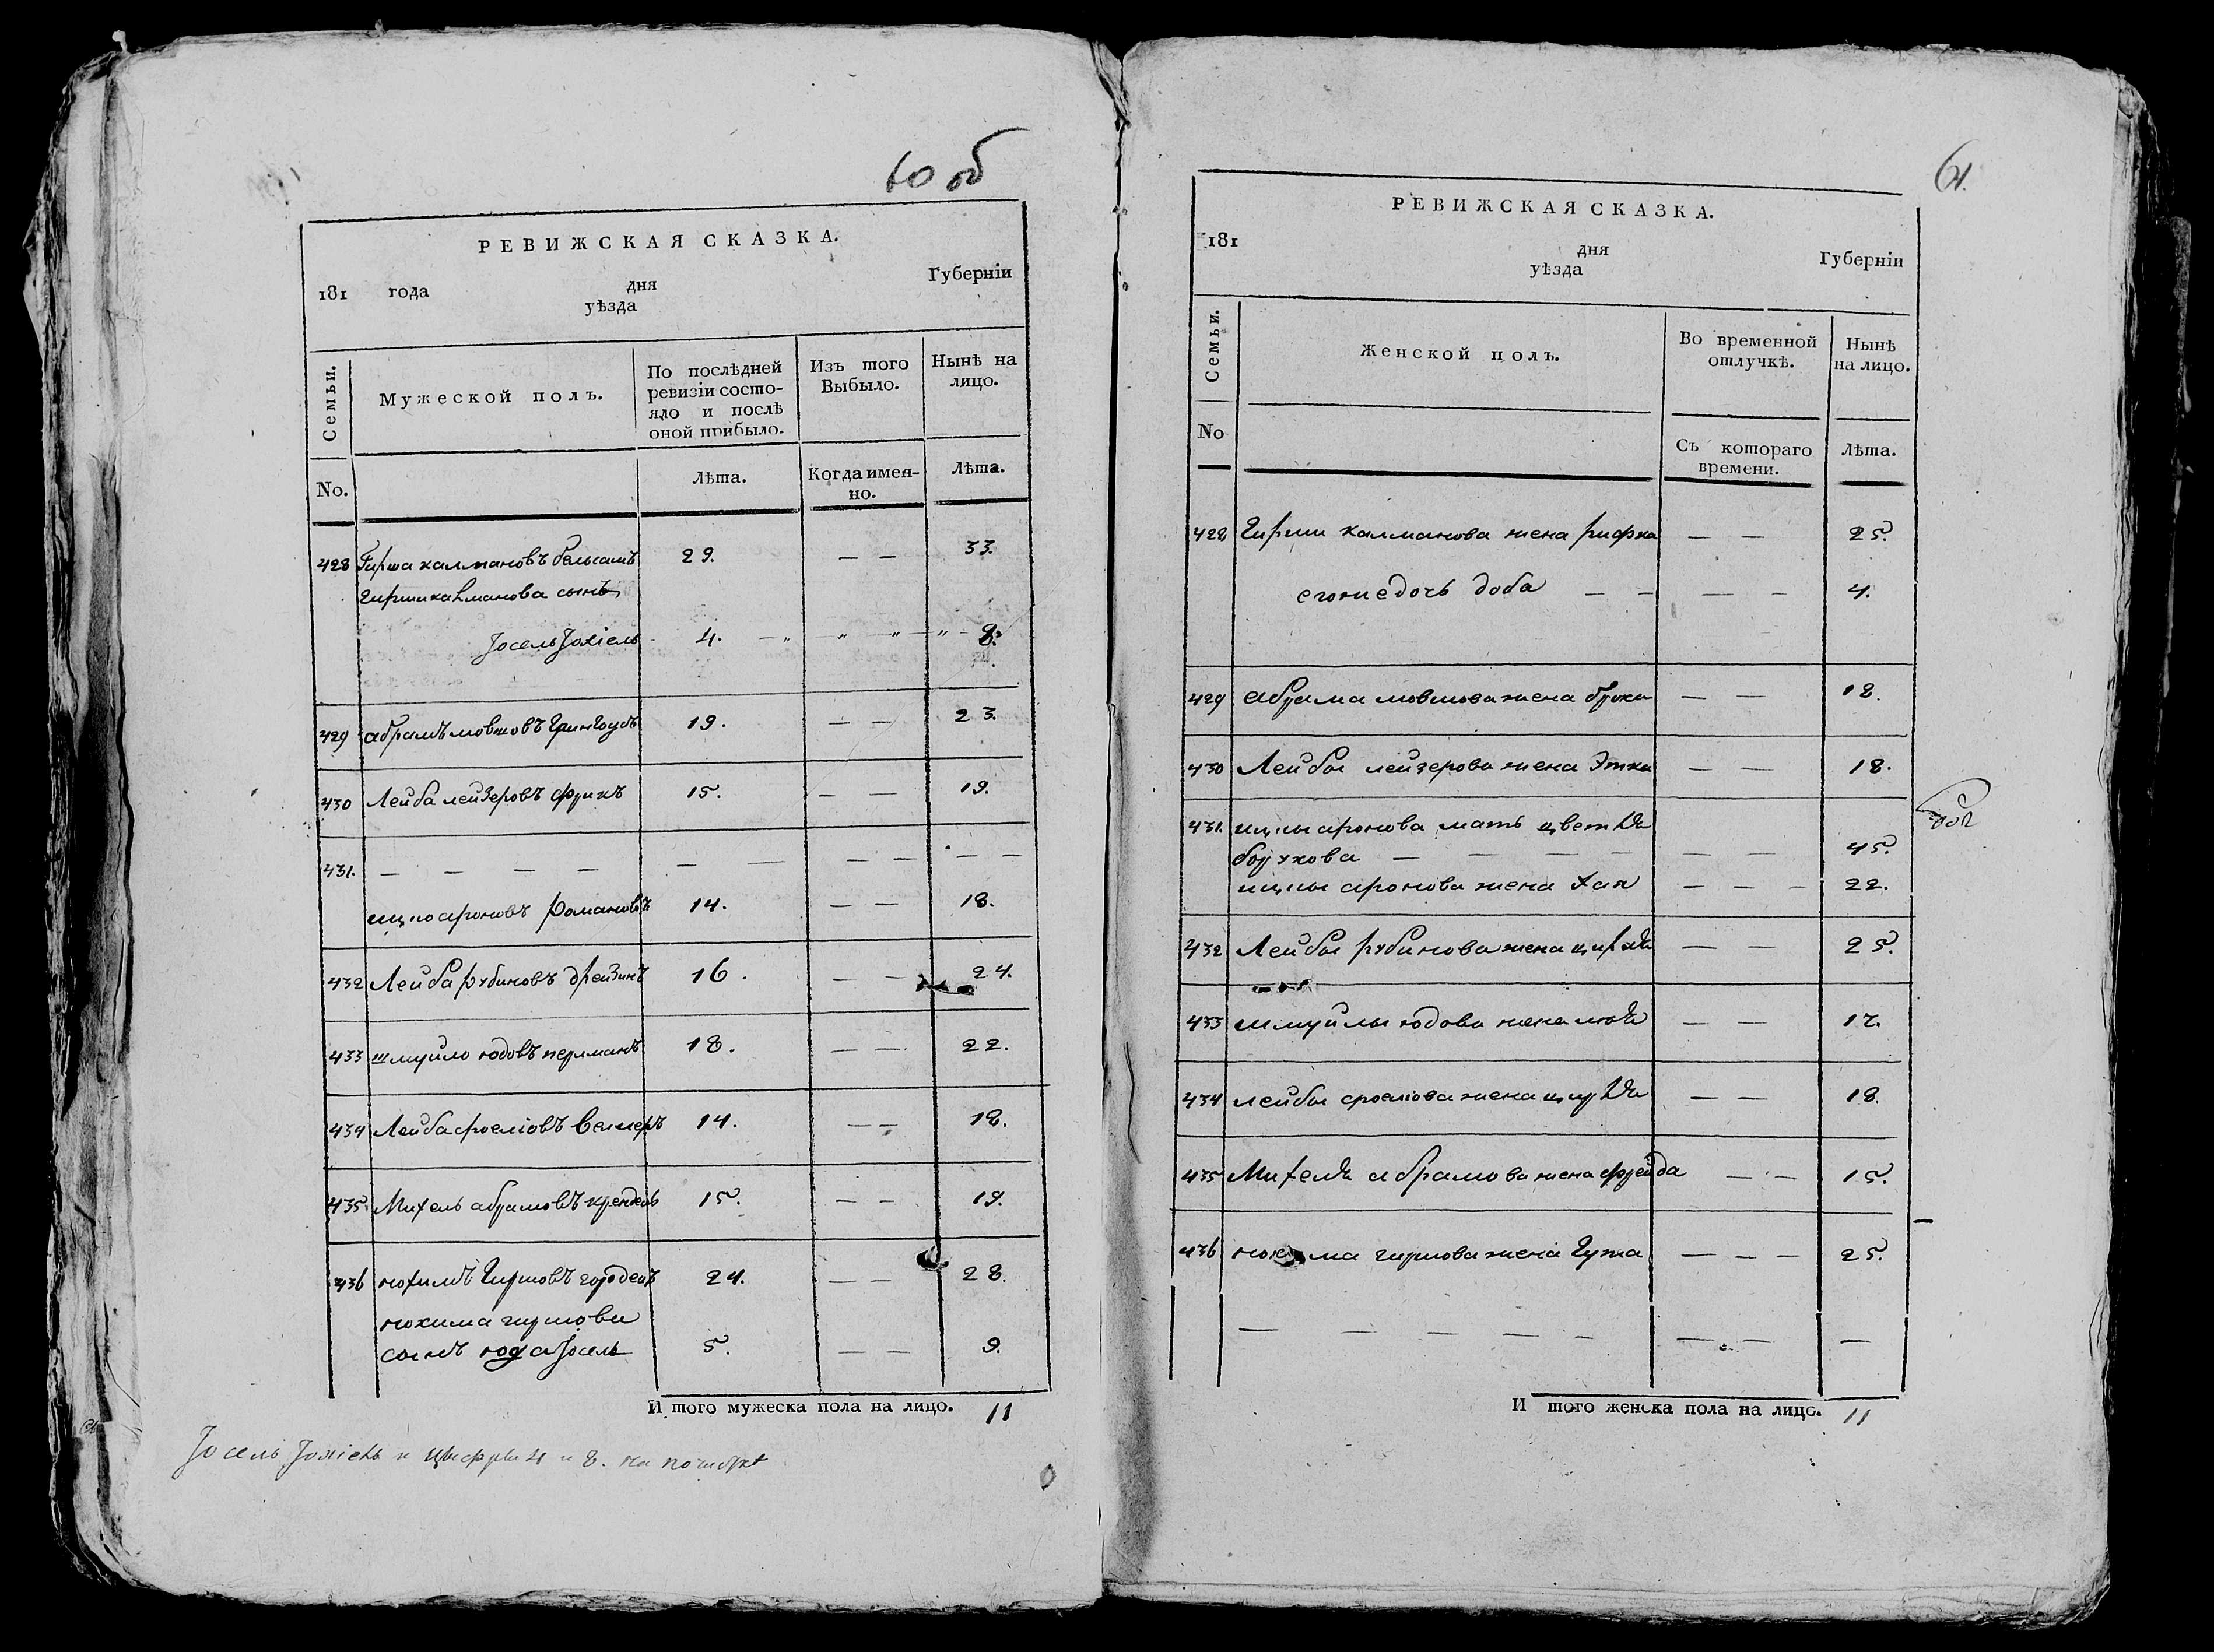 60 об
РЕВИЖСКАЯ СКАЗКА.
181 года дня Губерніи
уѣзда
Семьи.
Мужеской полъ.
По послѣдней ревизіи состояло и послѣ оной прибыло.
Изъ того Выбыло.
Нынѣ на лицо.
No.
Лѣта.
Когда именно.
Лѣта.
428 Гирша калмановъ 29. — — 33.
гирши калманова сынъ
Іосель Іохіель 4. — „ „ „ „ 8.
429 абрамъ мовшовъ 19. — — 23.
430 Лейба лейзеровъ 15. — — 19.
431. — — — — — — — — — —
ицко ароновъ Романовъ 14. — — 18.
432 Лейба рубиновъ дрейзинъ 16. — — 24.
433 шмуйло юдовъ перманъ 18. — — 22.
434 Лейба сроеліовъ 14. — — 18.
435 Михель абрамовъ крендель 15. — — 19.
436 нохимъ Гиршовъ городецъ 24. — — 28.
нохима гиршова
сынъ Іосель 5. — — 9.
И того мужеска пола на лицо. 11
Іосель Іохіель и цифры 4 и 8. на
61.
РЕВИЖСКАЯ СКАЗКА.
181 дня Губерніи
уѣзда
Семьи.
Женской полъ.
Во временной отлучкѣ.
Нынѣ на лицо.
No
Съ котораго времени.
Лѣта.
428 Гирши калманова жена рифка — — 25.
его же дочь доба — — — — 4.
429 абрама мовшова жена — — 18.
430 Лейбы лейзерова жена Этка — — 18.
431. ицки аронова мать цветка
борухова — — — — — — 45.
ицки аронова жена хая — — — 22.
432 Лейбы рубинова жена — — 25.
433 шмуйлы юдова жена — — 17.
434 лейбы сроеліова жена — — 18.
435 Михеля абрамова жена фрейда — — 15.
436 нохима гиршова жена Гута — — — 25.
— — — — — — — —
И того женска пола на лицо. 11